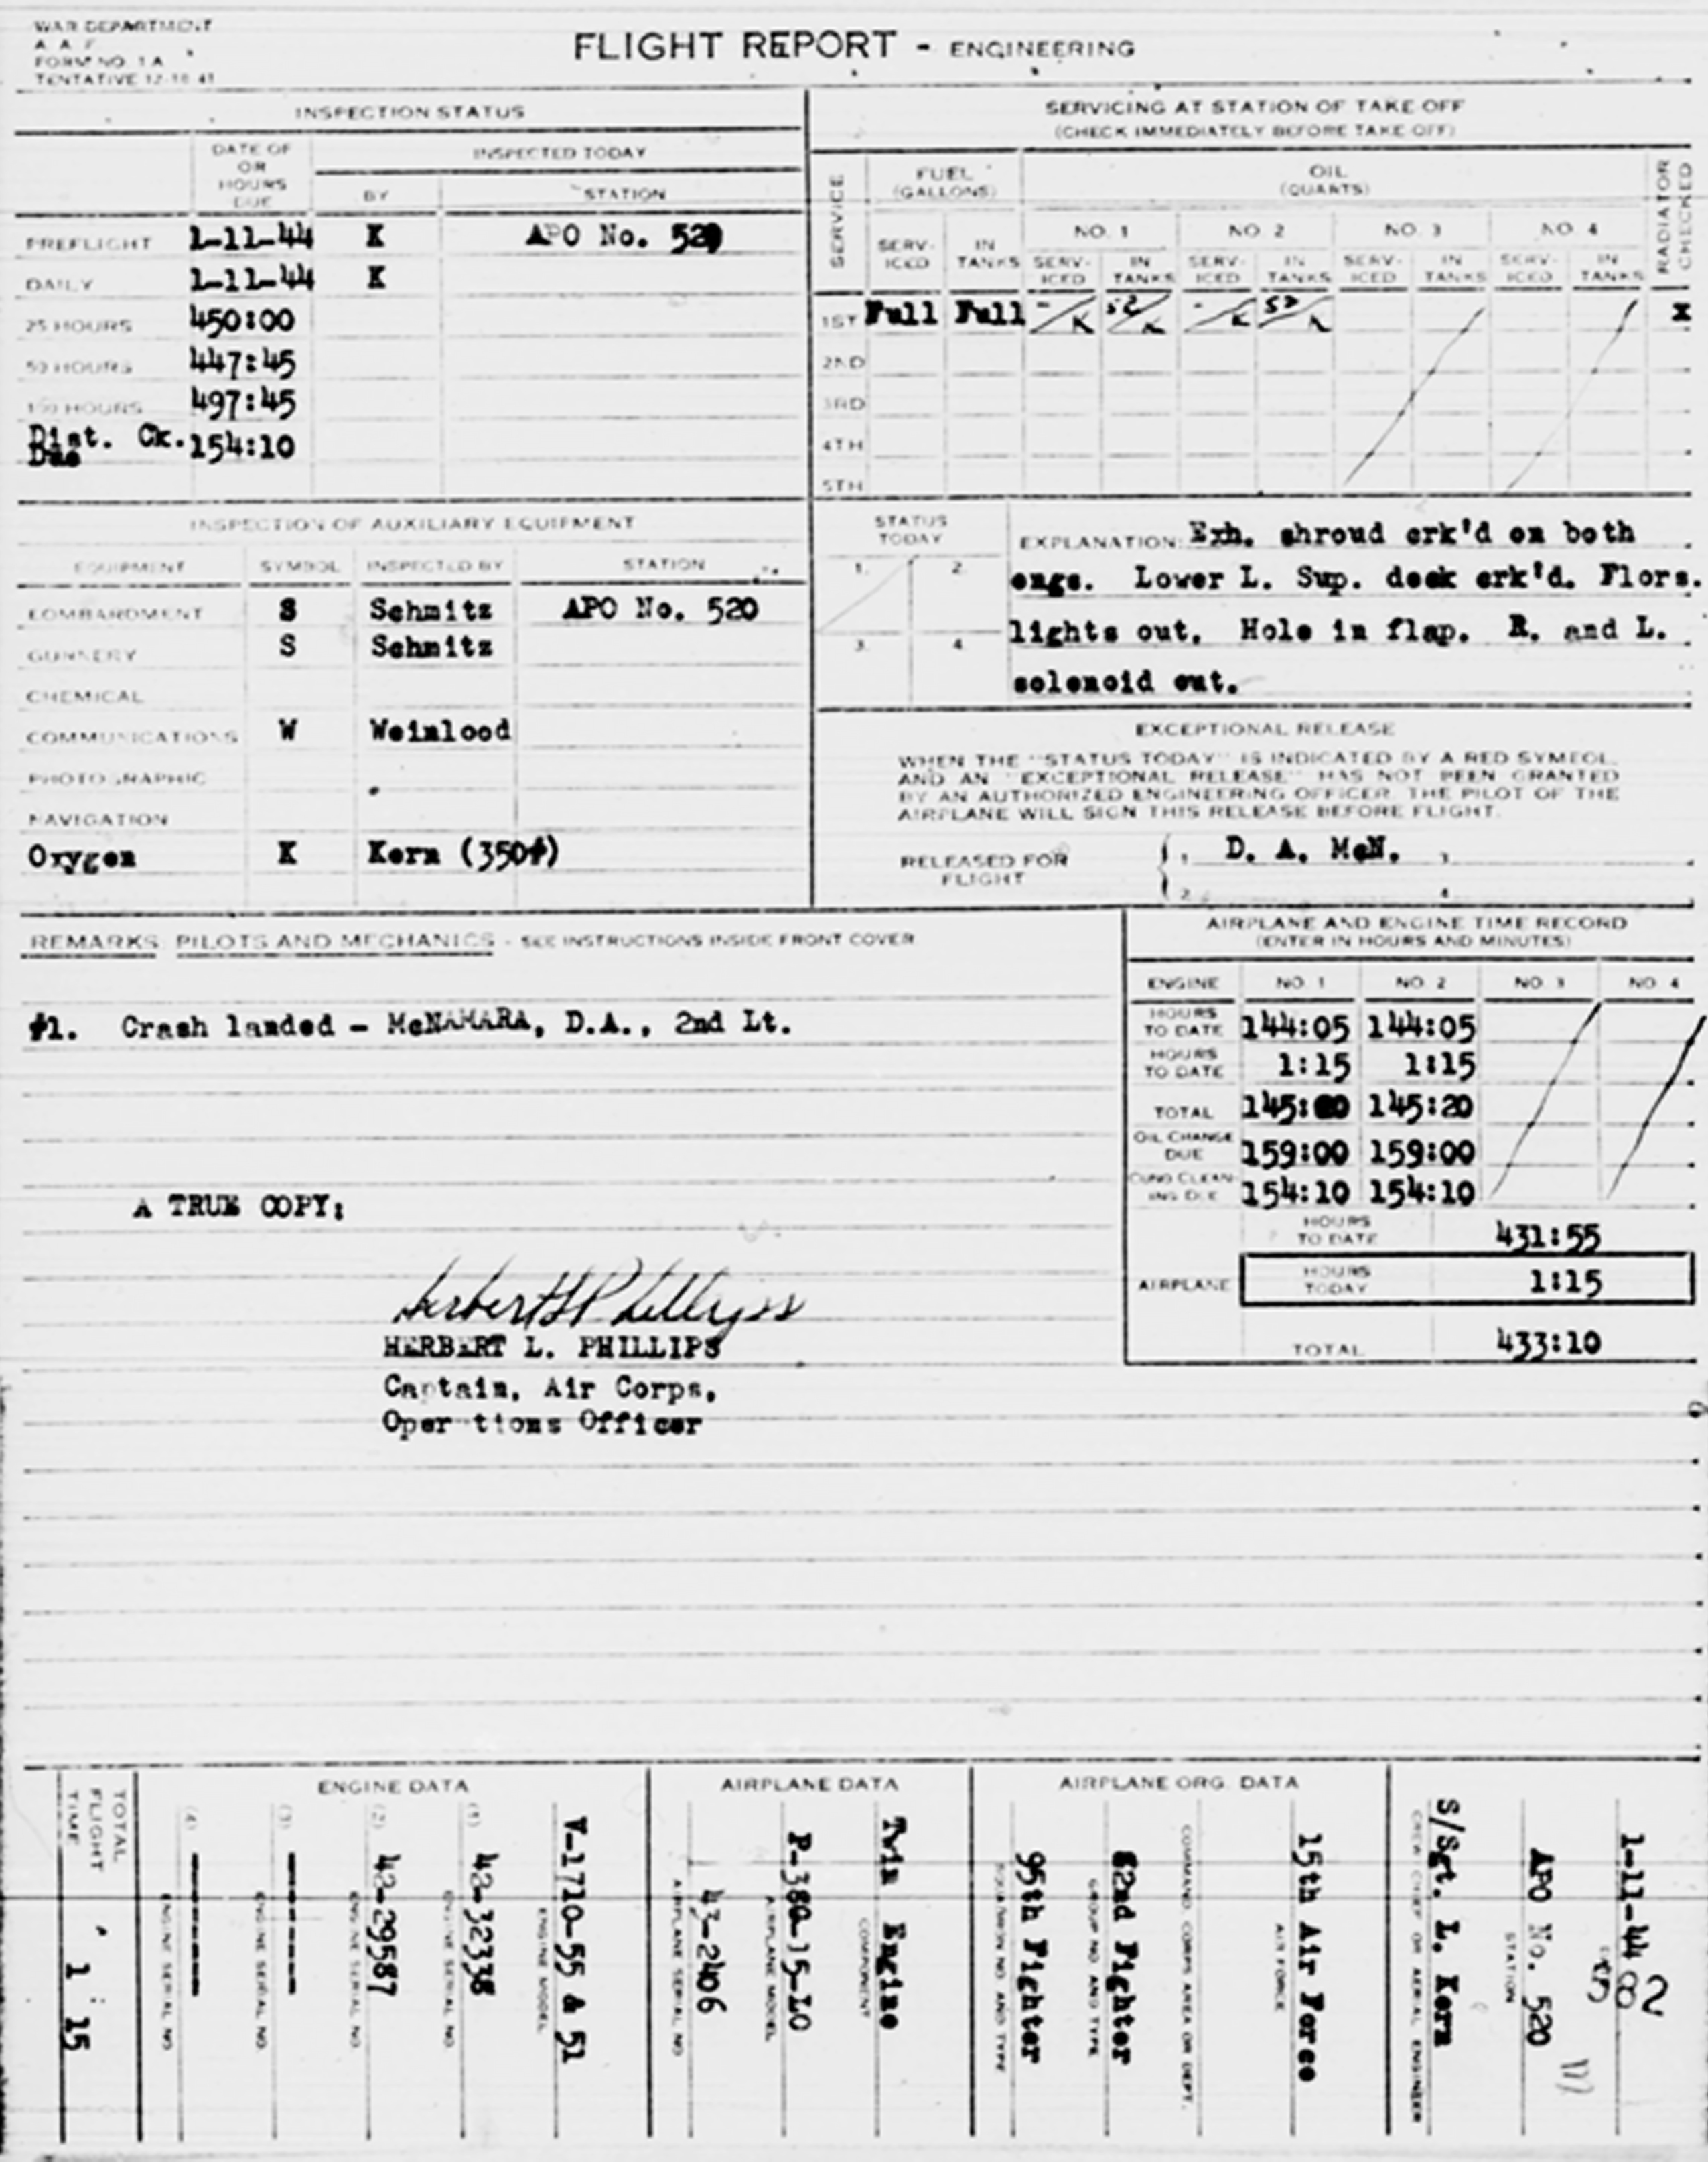 WAR DEPARTMENT
A. A. F.
FORM NO. 1A
TENTATIVE 12-18-41
FLIGHT REPORT - ENGINEERING
INSPECTION STATUS
DATE OF OR HOURS DUE
INSPECTED TODAY
BY
STATION
PREFLIGHT 1-11-44 K APO No. 520
DAILY 1-11-44 K
25 HOURS 450:00
50 HOURS 447:45
100 HOURS 497:45
Dist. Ck. Due 154:10
SERVICING AT STATION OF TAKE OFF
(CHECK IMMEDIATELY BEFORE TAKE OFF)
SERVICE
FUEL (GALLONS)
OIL (QUARTS)
RADIATOR CHECKED
NO. 1 NO. 2 NO. 3 NO. 4
SERV-ICED IN TANKS SERV-ICED IN TANKS SERV-ICED IN TANKS SERV-ICED IN TANKS SERV-ICED IN TANKS
1ST Full Full -/K 52/K -/K 52/K X
2ND
3RD
4TH
5TH
INSPECTION OF AUXILIARY EQUIPMENT
EQUIPMENT SYMBOL INSPECTED BY STATION
BOMBARDMENT S Schmitz APO No. 520
GUNNERY S Schmitz
CHEMICAL
COMMUNICATIONS W Weinlood
PHOTOGRAPHIC
NAVIGATION
Oxygen K Kern (350#)
STATUS TODAY
1. 2.
3. 4.
EXPLANATION: Exh. shroud crk'd on both
engs. Lower L. Sup. deck crk'd. Flors.
lights out. Hole in flap. R. and L.
solenoid out.
EXCEPTIONAL RELEASE
WHEN THE "STATUS TODAY" IS INDICATED BY A RED SYMBOL
AND AN "EXCEPTIONAL RELEASE" HAS NOT BEEN GRANTED
BY AN AUTHORIZED ENGINEERING OFFICER, THE PILOT OF THE
AIRPLANE WILL SIGN THIS RELEASE BEFORE FLIGHT.
RELEASED FOR FLIGHT
1. D. A. McN. 3.
2. 4.
REMARKS: PILOTS AND MECHANICS - SEE INSTRUCTIONS INSIDE FRONT COVER
#1. Crash landed - McNAMARA, D.A., 2nd Lt.
A TRUE COPY:
Herbert L Phillips
HERBERT L. PHILLIPS
Captain, Air Corps,
Operations Officer
AIRPLANE AND ENGINE TIME RECORD
(ENTER IN HOURS AND MINUTES)
ENGINE NO. 1 NO. 2 NO. 3 NO. 4
HOURS TO DATE 144:05 144:05
HOURS TO DATE 1:15 1:15
TOTAL 145:20 145:20
OIL CHANGE DUE 159:00 159:00
CUNO CLEAN-ING DUE 154:10 154:10
AIRPLANE
HOURS TO DATE 431:55
HOURS TODAY 1:15
TOTAL 433:10
TOTAL FLIGHT TIME
1 : 15
ENGINE DATA
V-1710-55 & 51
ENGINE MODEL
(1) 42-32338
ENGINE SERIAL NO.
(2) 42-29587
ENGINE SERIAL NO.
(3)
ENGINE SERIAL NO.
(4)
ENGINE SERIAL NO.
AIRPLANE DATA
Twin Engine
COMPONENT
P-38G-15-LO
AIRPLANE MODEL
43-2406
AIRPLANE SERIAL NO.
AIRPLANE ORG. DATA
15th Air Force
AIR FORCE
COMMAND, CORPS AREA OR DEPT.
82nd Fighter
GROUP NO. AND TYPE
95th Fighter
SQUADRON NO. AND TYPE
1-11-44
582
APO No. 520
STATION
S/Sgt. L. Kern
CREW CHIEF OR AERIAL ENGINEER